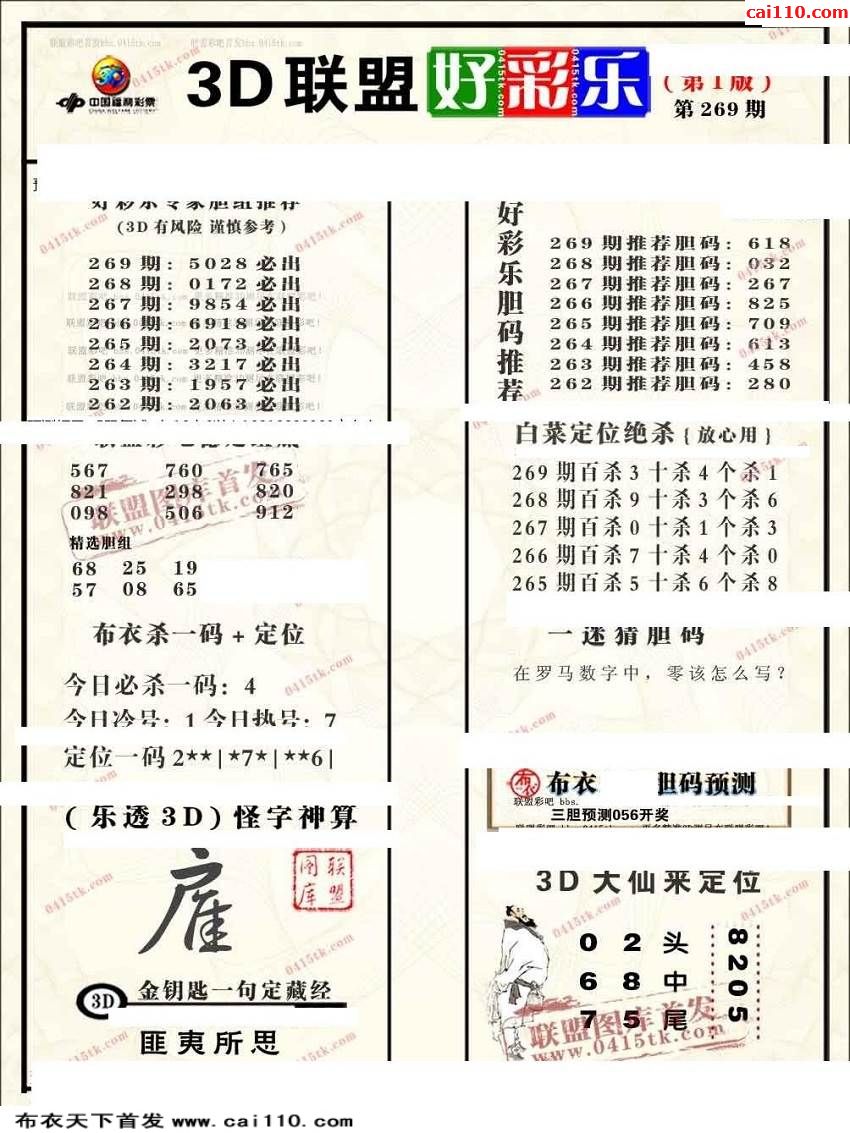 cai110.com
3D联盟好彩乐
(第1版)
第269期
中国福利彩票
CHINA WELFARE LOTTERY
好彩乐专家胆组推荐
(3D有风险 谨慎参考)
269期: 5028必出
268期: 0172必出
267期: 9854必出
266期: 6918必出
265期: 2073必出
264期: 3217必出
263期: 1957必出
262期: 2063必出
567 760 765
821 298 820
098 506 912
精选胆组
68 25 19
57 08 65
布衣杀一码+定位
今日必杀一码: 4
今日冷号: 1 今日热号: 7
定位一码 2**|*7*|**6|
(乐透3D)怪字神算
雇
联盟图库
3D 金钥匙一句定藏经
匪夷所思
好彩乐胆码推荐
269期推荐胆码: 618
268期推荐胆码: 032
267期推荐胆码: 267
266期推荐胆码: 825
265期推荐胆码: 709
264期推荐胆码: 613
263期推荐胆码: 458
262期推荐胆码: 280
白菜定位绝杀{放心用}
269期百杀3十杀4个杀1
268期百杀9十杀3个杀6
267期百杀0十杀1个杀3
266期百杀7十杀4个杀0
265期百杀5十杀6个杀8
一迷猜胆码
在罗马数字中，零该怎么写?
布衣 胆码预测
联盟彩吧 bbs.
三胆预测056开奖
3D大仙来定位
0 2 头
6 8 中
7 5 尾
8205
联盟图库首发
www.0415tk.com
布衣天下首发 www.cai110.com